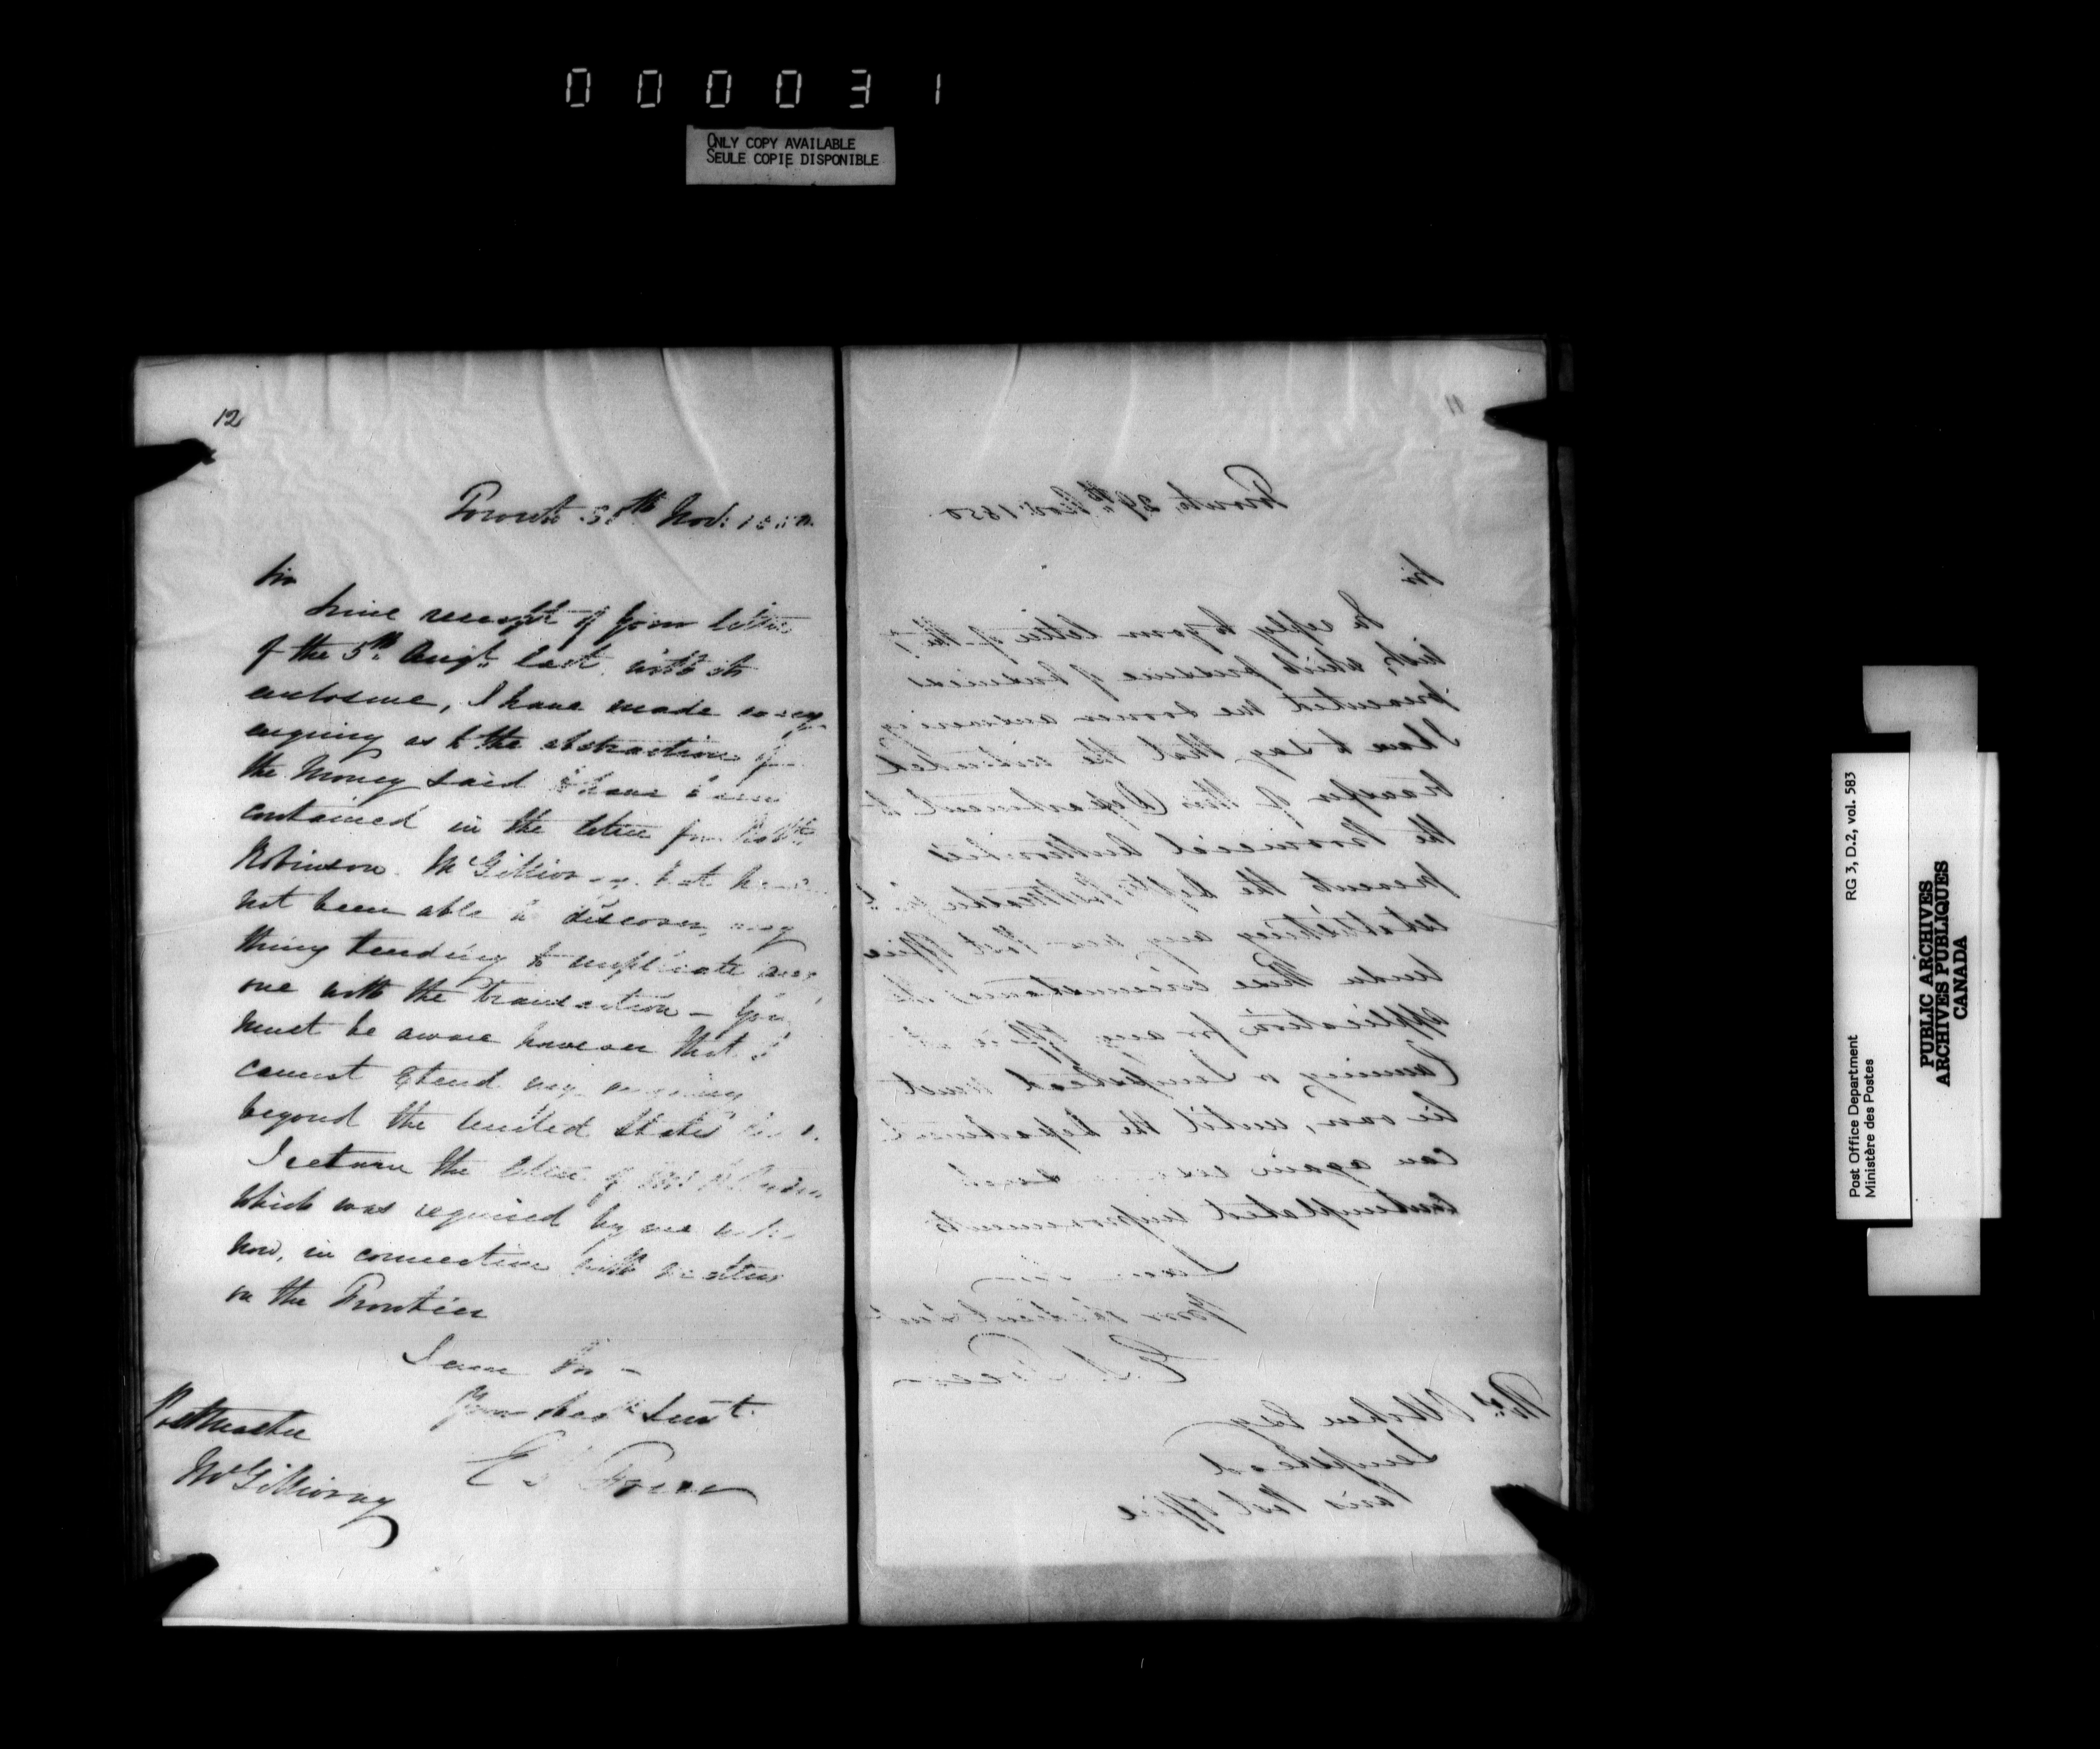 000031
ONLY COPY AVAILABLE
SEULE COPIE DISPONIBLE
12
Toronto 30th Nov: 1850
Sir
Since receipt of your letter
of the 5th Augt. last with its
enclosure, I have made every
enquiry as to the abstraction of
the Money said to have been
contained in the letter for
Robinson. McGillivray. but have
not been able to discover any
thing tending to implicate any
one with the transaction – You
must be aware however that I
cannot extend my enquiry
beyond the United States
I return the letter of
which was required by me
now, in connection with matters
on the Frontier
I am Sir –
Your Servt.
E S Freer
Postmaster
McGillivray
11
Toronto, 29th Nov: 1850
Sir
In reply to your letter of the 7
which pressure of business
prevented me sooner answering
I have to say, that the intended
transfer of this Department to
the Provincial Authorities
prevents the
establishing any new Post Office
under these circumstances the
application for any Office at
Canning or must
lie over, until the Department
can again such
contemplated improvements
I am Sir
Your obedient Servt
E. S. Freer
Esq
Paris Post Office
Post Office Department RG 3, D.2, vol. 583
Ministère des Postes
PUBLIC ARCHIVES
ARCHIVES PUBLIQUES
CANADA